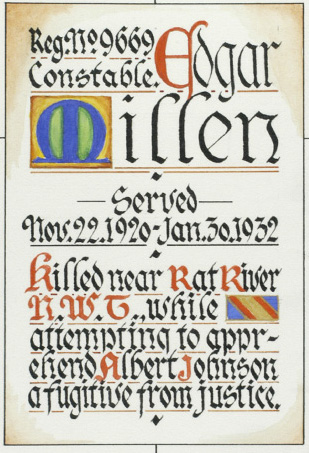 Reg. No. 9669 Edgar
Constable.
Millen
Served
Nov. 22. 1920 - Jan. 30. 1932
Killed near Rat River
N. W. T., while
attempting to appr-
ehend Albert Johnson
a fugitive from justice.